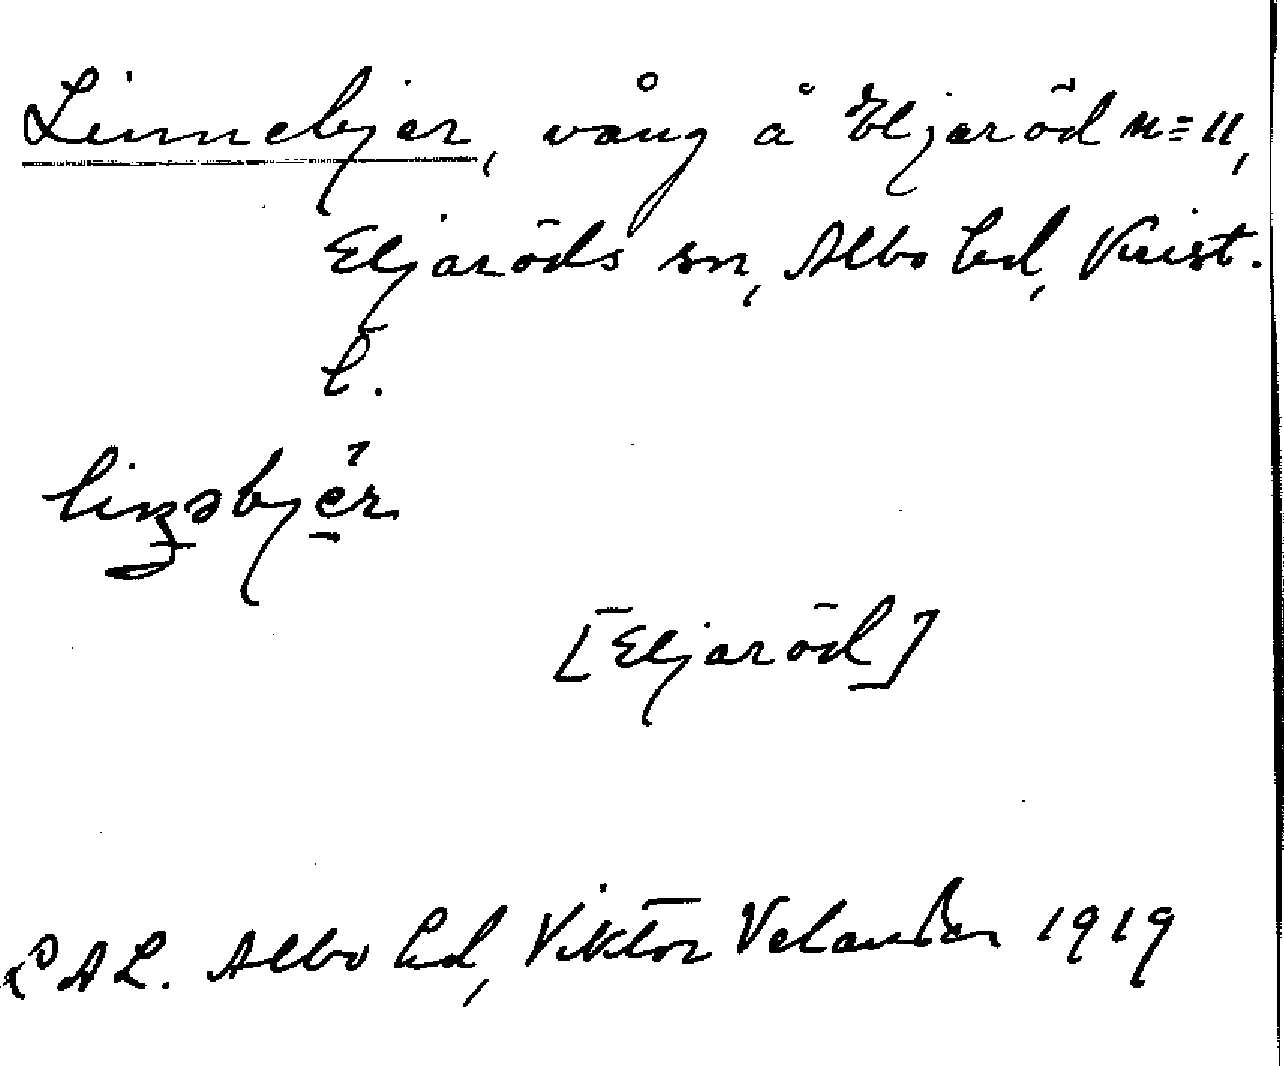 Linnebjer, vång å Eljaröd n= 11,
Eljaröds sn, Albo hd, Krist.
l.
[Eljaröd]
LAL. Albo hd, Viktor Velander 1919